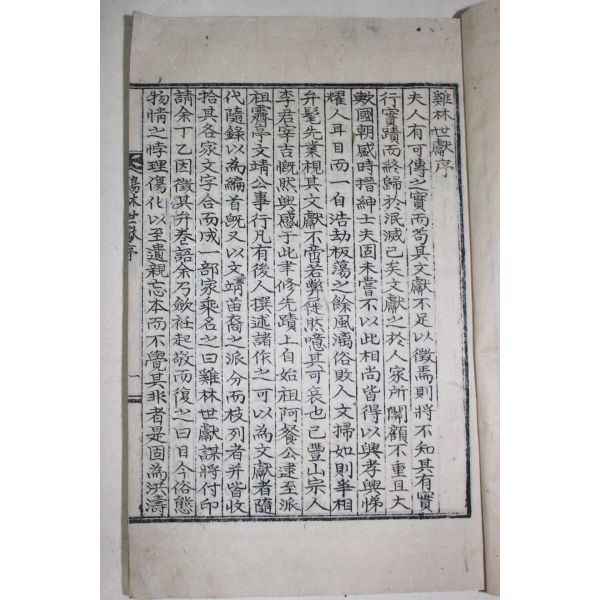 雞林世獻序
夫人有可傳之實而苟其文獻不足以徵焉則將不知其有實
行實蹟而終歸於泯滅已矣文獻之於人家所關顧不重且大
歟國朝盛時搢紳士夫固未嘗不以此相尚皆得以興孝興悌
耀人耳目而一自浩劫板蕩之餘風漓俗敗人文掃如則率相
弁髦先業視其文獻不啻若弊屣然噫其可哀也已豐山宗人
李君宰吉慨然興感于此聿修先蹟上自始祖阿飡公逮至派
祖霽亭文靖公事行凡有後人撰述諸作之可以為文獻者隨
代隨錄以為編首旣又以文靖苗裔之派分而枝列者并皆收
拾其各家文字合而成一部家乘名之曰雞林世獻謀將付印
請余丁乙因徵其弁卷語余乃斂衽起敬而復之曰目今俗態
物情之悖理傷化以至遺親忘本而不覺其非者是固為洪濤
雞林世獻序
一